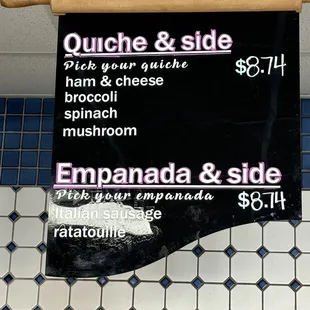 Quiche & side
Pick your quiche $8.74
ham & cheese
broccoli
spinach
mushroom
Empanada & side
Pick your empanada $8.74
Italian sausage
ratatouille